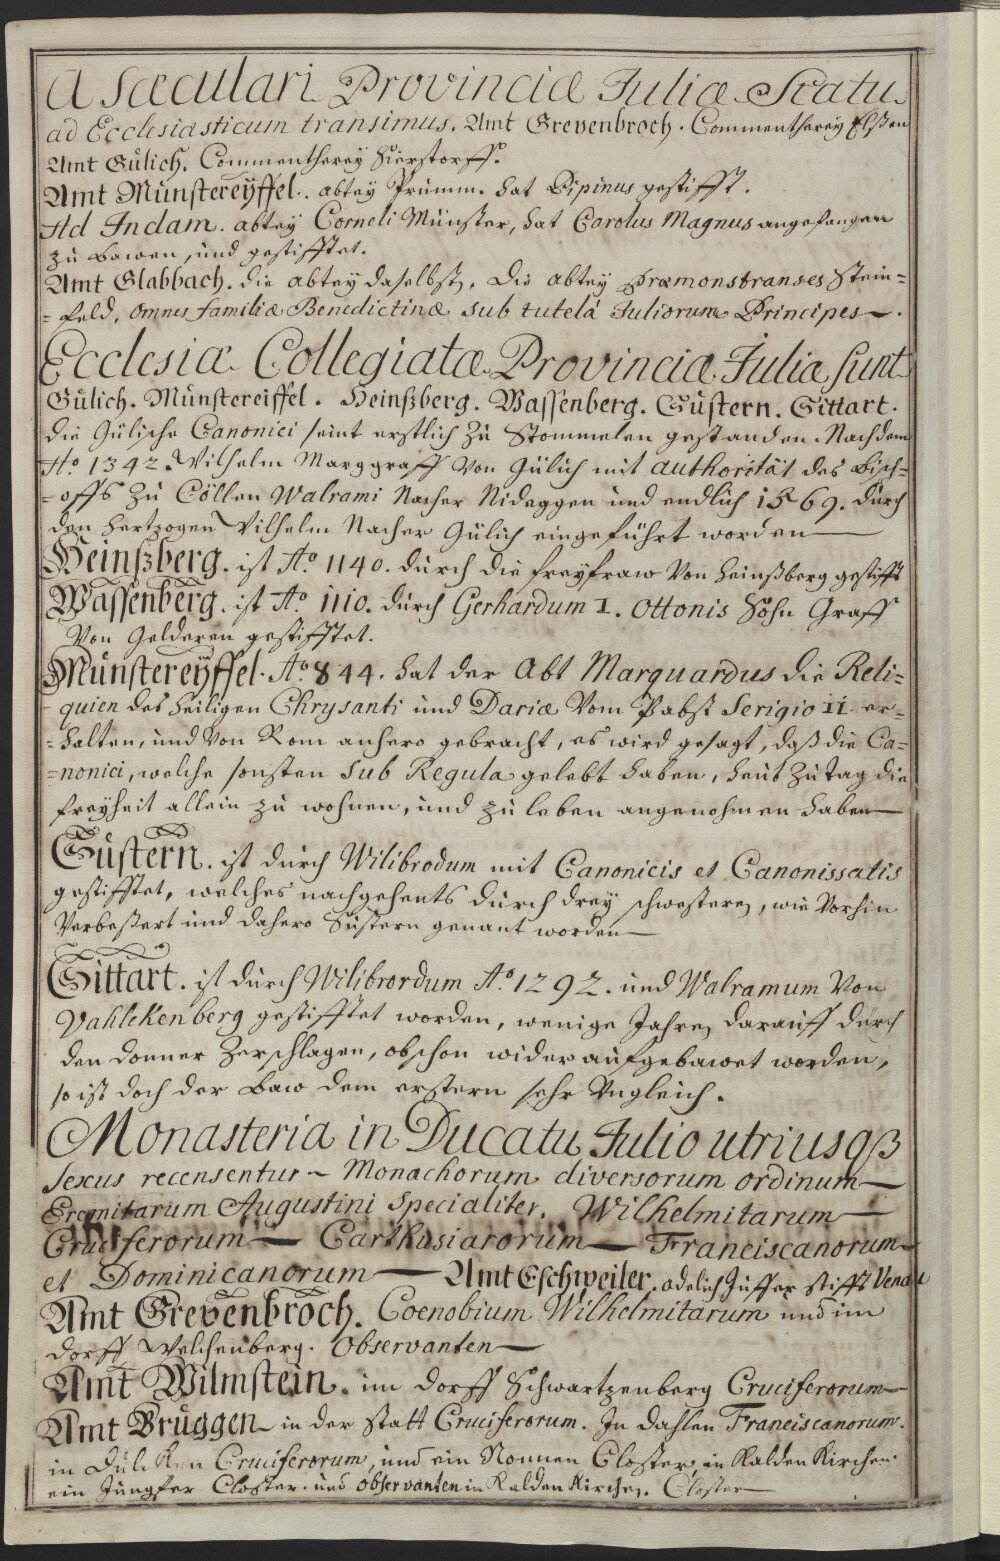 A sæculari Provinciæ Juliæ Statu
ad Ecclesiasticum transimus. Amt Grevenbroch. Commentherey Elßen
Amt Gülich. Commentherey Sierstorff.
Amt Münstereyffel. abtey Prumm. hat Pipinus gestifft.
Ad Indam. abtey Corneli Münster, hat Carolus Magnus angefangen
zu bawen, und gestifftet.
Amt Glabbach. die abtey daselbst, Die abtey Præmonstranses Stein-
-feld, omnes familiæ Benedictinæ sub tutelâ Juliorum Principes.
Ecclesiæ Collegiatæ Provinciæ Juliæ sunt
Gülich. Münstereiffel. Heinßberg. Wassenberg. Güstern. Sittart.
die Gülische Canonici seint erstlich zu Stommelen gestanden. Nachdem
Aº 1342. Wilhelm Marggraff von Gülich mit authorität des Bisch-
-offs zu Cöllen Walrami nacher Nideggen und endlich 1569. durch
den Hertzogen Wilhelm nacher Gülich eingeführt worden
Heinßberg. ist Aº 1140. durch die freyfraw von Heinßberg gestifft
Wassenberg. ist Aº 1110. durch Gerhardum I. Ottonis Sohn Graff
von Gelderen gestifftet.
Münstereyffel. Aº 844. hat der Abt Marquardus die Reli-
quien des heiligen Chrysanti und Dariæ vom Pabst Serigio II er-
-halten, und von Rom anhero gebracht, es wird gesagt, daß die Ca-
-nonici, welche sonsten sub Regula gelebt haben, heut zu tag die
freyheit allein zu wohnen, und zu leben angenohmen haben
Güstern. ist durch Wilibrodum mit Canonicis et Canonissatis
gestifftet, welches nachgehents durch drey schwesteren, wie vorhin
verbeßert und dahero Süstern genant worden
Sittart. ist durch Wilibrordum Aº 1292. und Walramum von
Vahlckenberg gestifftet worden, wenige Jahren darauff durch
den donner zerschlagen, obschon wider aufgebawet worden,
so ist doch der baw dem erstern sehr ungleich.
Monasteria in Ducatu Julio utriusqß
sexus recensentur Monachorum diversorum ordinum
Eremitarum Augustini specialiter. Wilhelmitarum
Cruciferorum Carthusiarorum Franciscanorum
et Dominicanorum Amt Eschweiler. adelich Juffer stifft
Amt Grevenbroch. Coenobium Wilhelmitarum und im
dorff Welchenberg. Observanten
Amt Wilmstein. im dorff Schwartzenberg Cruciferorum
Amt Brüggen in der statt Cruciferorum. In dahlen Franciscanorum.
in Dülcken Cruciferorum, und ein Nonnen Closter, in Kalden Kirchen
ein Jungfer Closter. und observanten in Kalden Kirchen. Closter